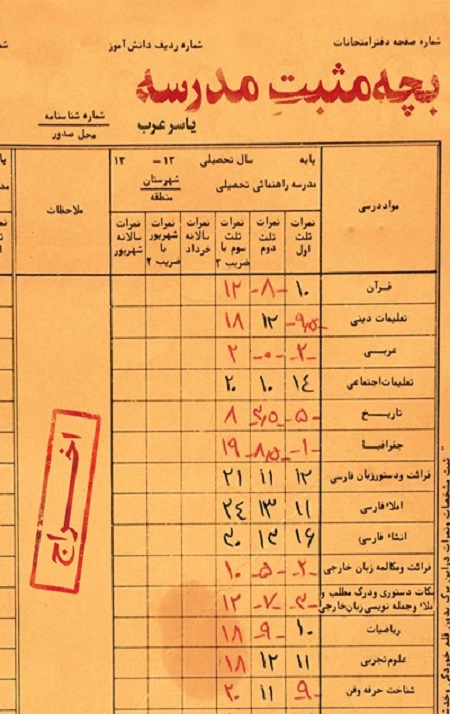 شماره صفحه دفتر امتحانات
شماره ردیف دانش آموز
بچه مثبتِ مدرسه
یاسر عرب
شماره شناسنامه
محل صدور
پایه سال تحصیلی ۱۳ – ۱۳
مدرسه راهنمائی تحصیلی شهرستان
منطقه
مواد درسی
نمرات ثلث اول
نمرات ثلث دوم
نمرات ثلث سوم با ضریب ۲
نمرات سالانه خرداد
نمرات شهریور با ضریب ۲
نمرات سالانه شهریور
ملاحظات
قرآن ۱۰ -۸- ۱۲
تعلیمات دینی -۹٫۵- ۱۲ ۱۸
عربی -۲- -۰- ۲
تعلیمات اجتماعی ۱۴ ۱۰ ۲۰
تاریخ -۵- -۳٫۵- ۸
جغرافیا -۱- -۸٫۵- ۱۹
قرائت و دستور زبان فارسی ۱۲ ۱۱ ۲۱
املاء فارسی ۱۱ ۱۳ ۲۴
انشاء فارسی ۱۶ ۱۳ ۳۰
قرائت و مکالمه زبان خارجی -۲- -۵- ۱۰
نکات دستوری و درک مطلب و
املاء و جمله نویسی زبان خارجی -۳- -۷- ۱۲
ریاضیات ۱۰ -۹- ۱۸
علوم تجربی ۱۱ ۱۲ ۱۸
شناخت حرفه و فن -۹ ۱۱ ۲۰
اخراج